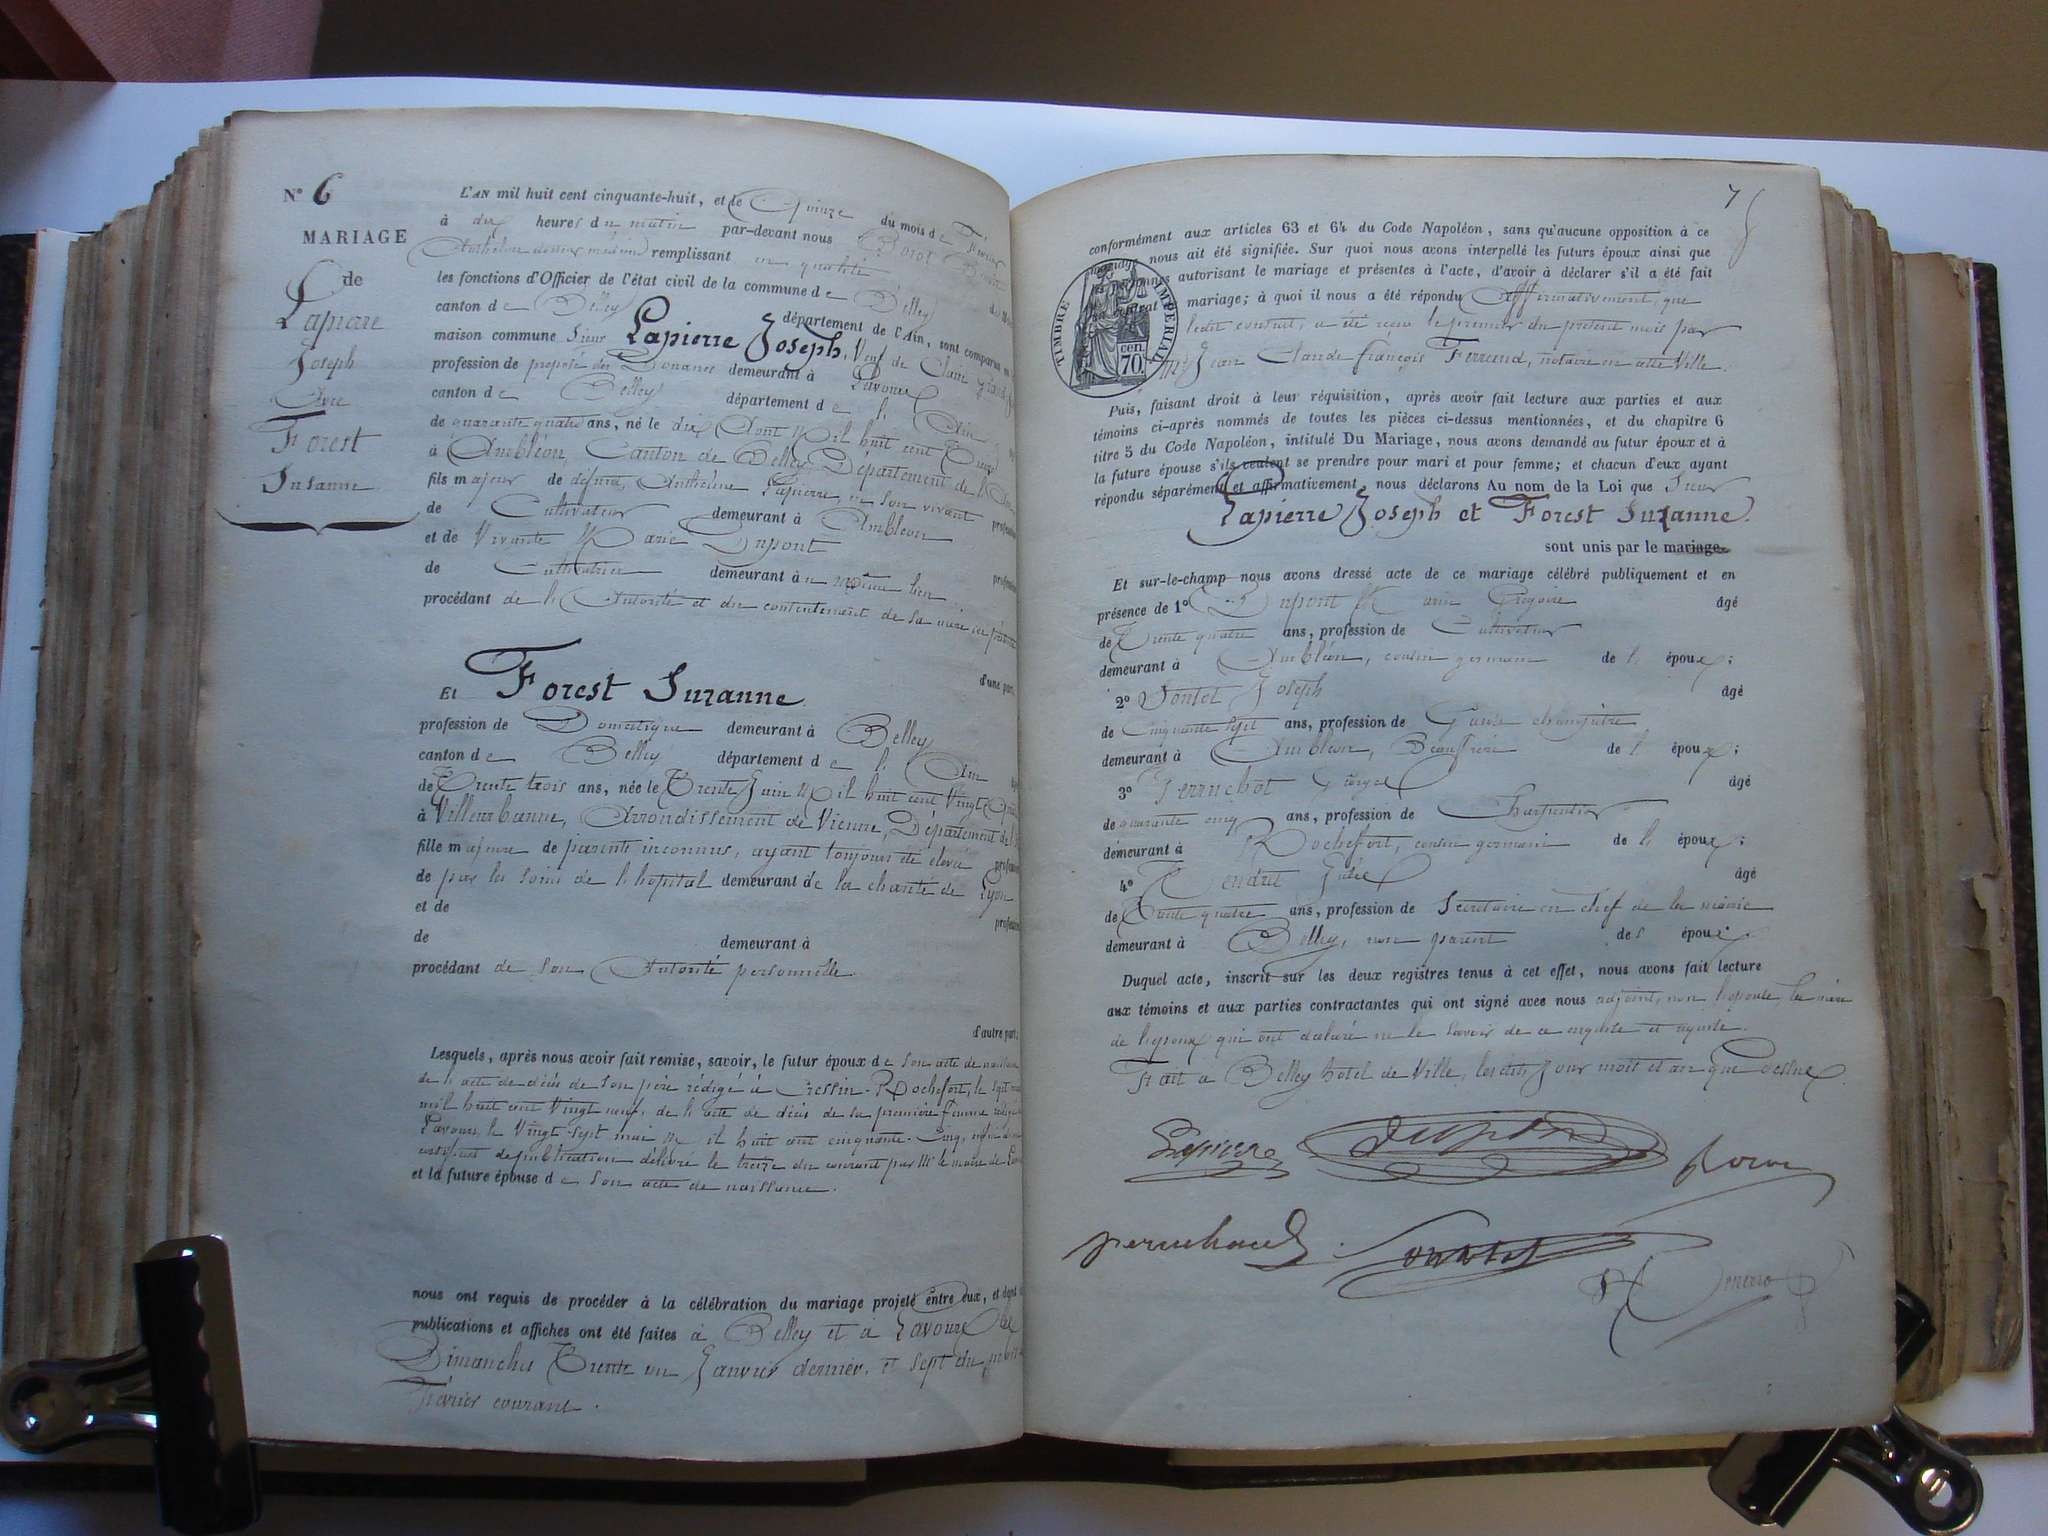 N° 6
MARIAGE
de
Lapierre
Joseph
Avec
Forest
Suzanne
L'AN mil huit cent cinquante-huit, et le Quinze du mois de Février
à dix heures du matin par-devant nous Borot
remplissant en qualité
les fonctions d'Officier de l'état civil de la commune de Belley
canton de Belley département de l'Ain, sont comparus en
maison commune Sieur Lapierre Joseph, Veuf de Claire
profession de préposé des Douanes demeurant à Lavours
canton de Belley département de l'Ain
de quarante quatre ans, né le dix Août Mil huit cent
à Ambléon, Canton de Belley, Département de l'Ain
fils majeur de défunt Anthelme Lapierre, en son vivant
de Cultivateur demeurant à Ambléon
et de Vivante Marie Dupont
de Cultivatrice demeurant au même lieu
procédant de l'Autorité et du consentement de sa mère ici présente
d'une part,
Et Forest Suzanne
profession de Domestique demeurant à Belley
canton de Belley département de l'Ain
de Trente trois ans, née le Trente Juin Mil huit cent Vingt Quatre
à Villeurbanne, Arrondissement de Vienne, Département de l'
fille majeure de parents inconnus, ayant toujours été élevée
de par les soins de l'hôpital demeurant de la charité de Lyon
et de
de demeurant à
procédant de son Autorité personnelle
d'autre part;
Lesquels, après nous avoir fait remise, savoir, le futur époux de son acte de naissance
de l'acte de décès de son père rédigé à Cressin-Rochefort, le sept
mil huit cent Vingt neuf, de l'acte de décès de sa première femme
Lavours, le Vingt-sept mai Mil huit cent cinquante-Cinq,
certificat de publication délivré le treize du courant par Mr le maire de
et la future épouse de son acte de naissance.
nous ont requis de procéder à la célébration du mariage projeté entre eux, et dont
publications et affiches ont été faites à Belley et à Lavours les
Dimanches Trente un Janvier dernier, et sept du
Février courant.
7
conformément aux articles 63 et 64 du Code Napoléon, sans qu'aucune opposition à ce
mariage nous ait été signifiée. Sur quoi nous avons interpellé les futurs époux ainsi que
les personnes autorisant le mariage et présentes à l'acte, d'avoir à déclarer s'il a été fait
un contrat mariage; à quoi il nous a été répondu Affirmativement, que
ledit contrat, a été reçu le premier du présent mois par
Me Jean Claude françois Ferrand, notaire en cette Ville.
TIMBRE IMPERIAL
70 cen.
Puis, faisant droit à leur réquisition, après avoir fait lecture aux parties et aux
témoins ci-après nommés de toutes les pièces ci-dessus mentionnées, et du chapitre 6
titre 5 du Code Napoléon, intitulé Du Mariage, nous avons demandé au futur époux et à
la future épouse s'ils veulent se prendre pour mari et pour femme; et chacun d'eux ayant
répondu séparément et affirmativement, nous déclarons Au nom de la Loi que Sieur
Lapierre Joseph et Forest Suzanne.
sont unis par le mariage.
Et sur-le-champ nous avons dressé acte de ce mariage célébré publiquement et en
présence de 1° Dupont Marin Grégoire âgé
de Trente quatre ans, profession de Cultivateur
demeurant à Ambléon, cousin germain de l'époux;
2° Sontet Joseph âgé
de Cinquante sept ans, profession de Garde champêtre
demeurant à Ambléon, Beaufrère de l'époux;
3° Perruchot âgé
de quarante cinq ans, profession de Charpentier
demeurant à Rochefort, cousin germain de l'époux;
4° âgé
de Trente quatre ans, profession de Secrétaire en chef de la mairie
demeurant à Belley, non parent des époux.
Duquel acte, inscrit sur les deux registres tenus à cet effet, nous avons fait lecture
aux témoins et aux parties contractantes qui ont signé avec nous adjoint, non l'épouse, la mère
de l'époux qui ont déclaré ne le savoir de ce enquise et
Fait à Belley hôtel de Ville, lesdits jour mois et an que dessus.
Lapierre Dupont Borot
perruchaud Sontet